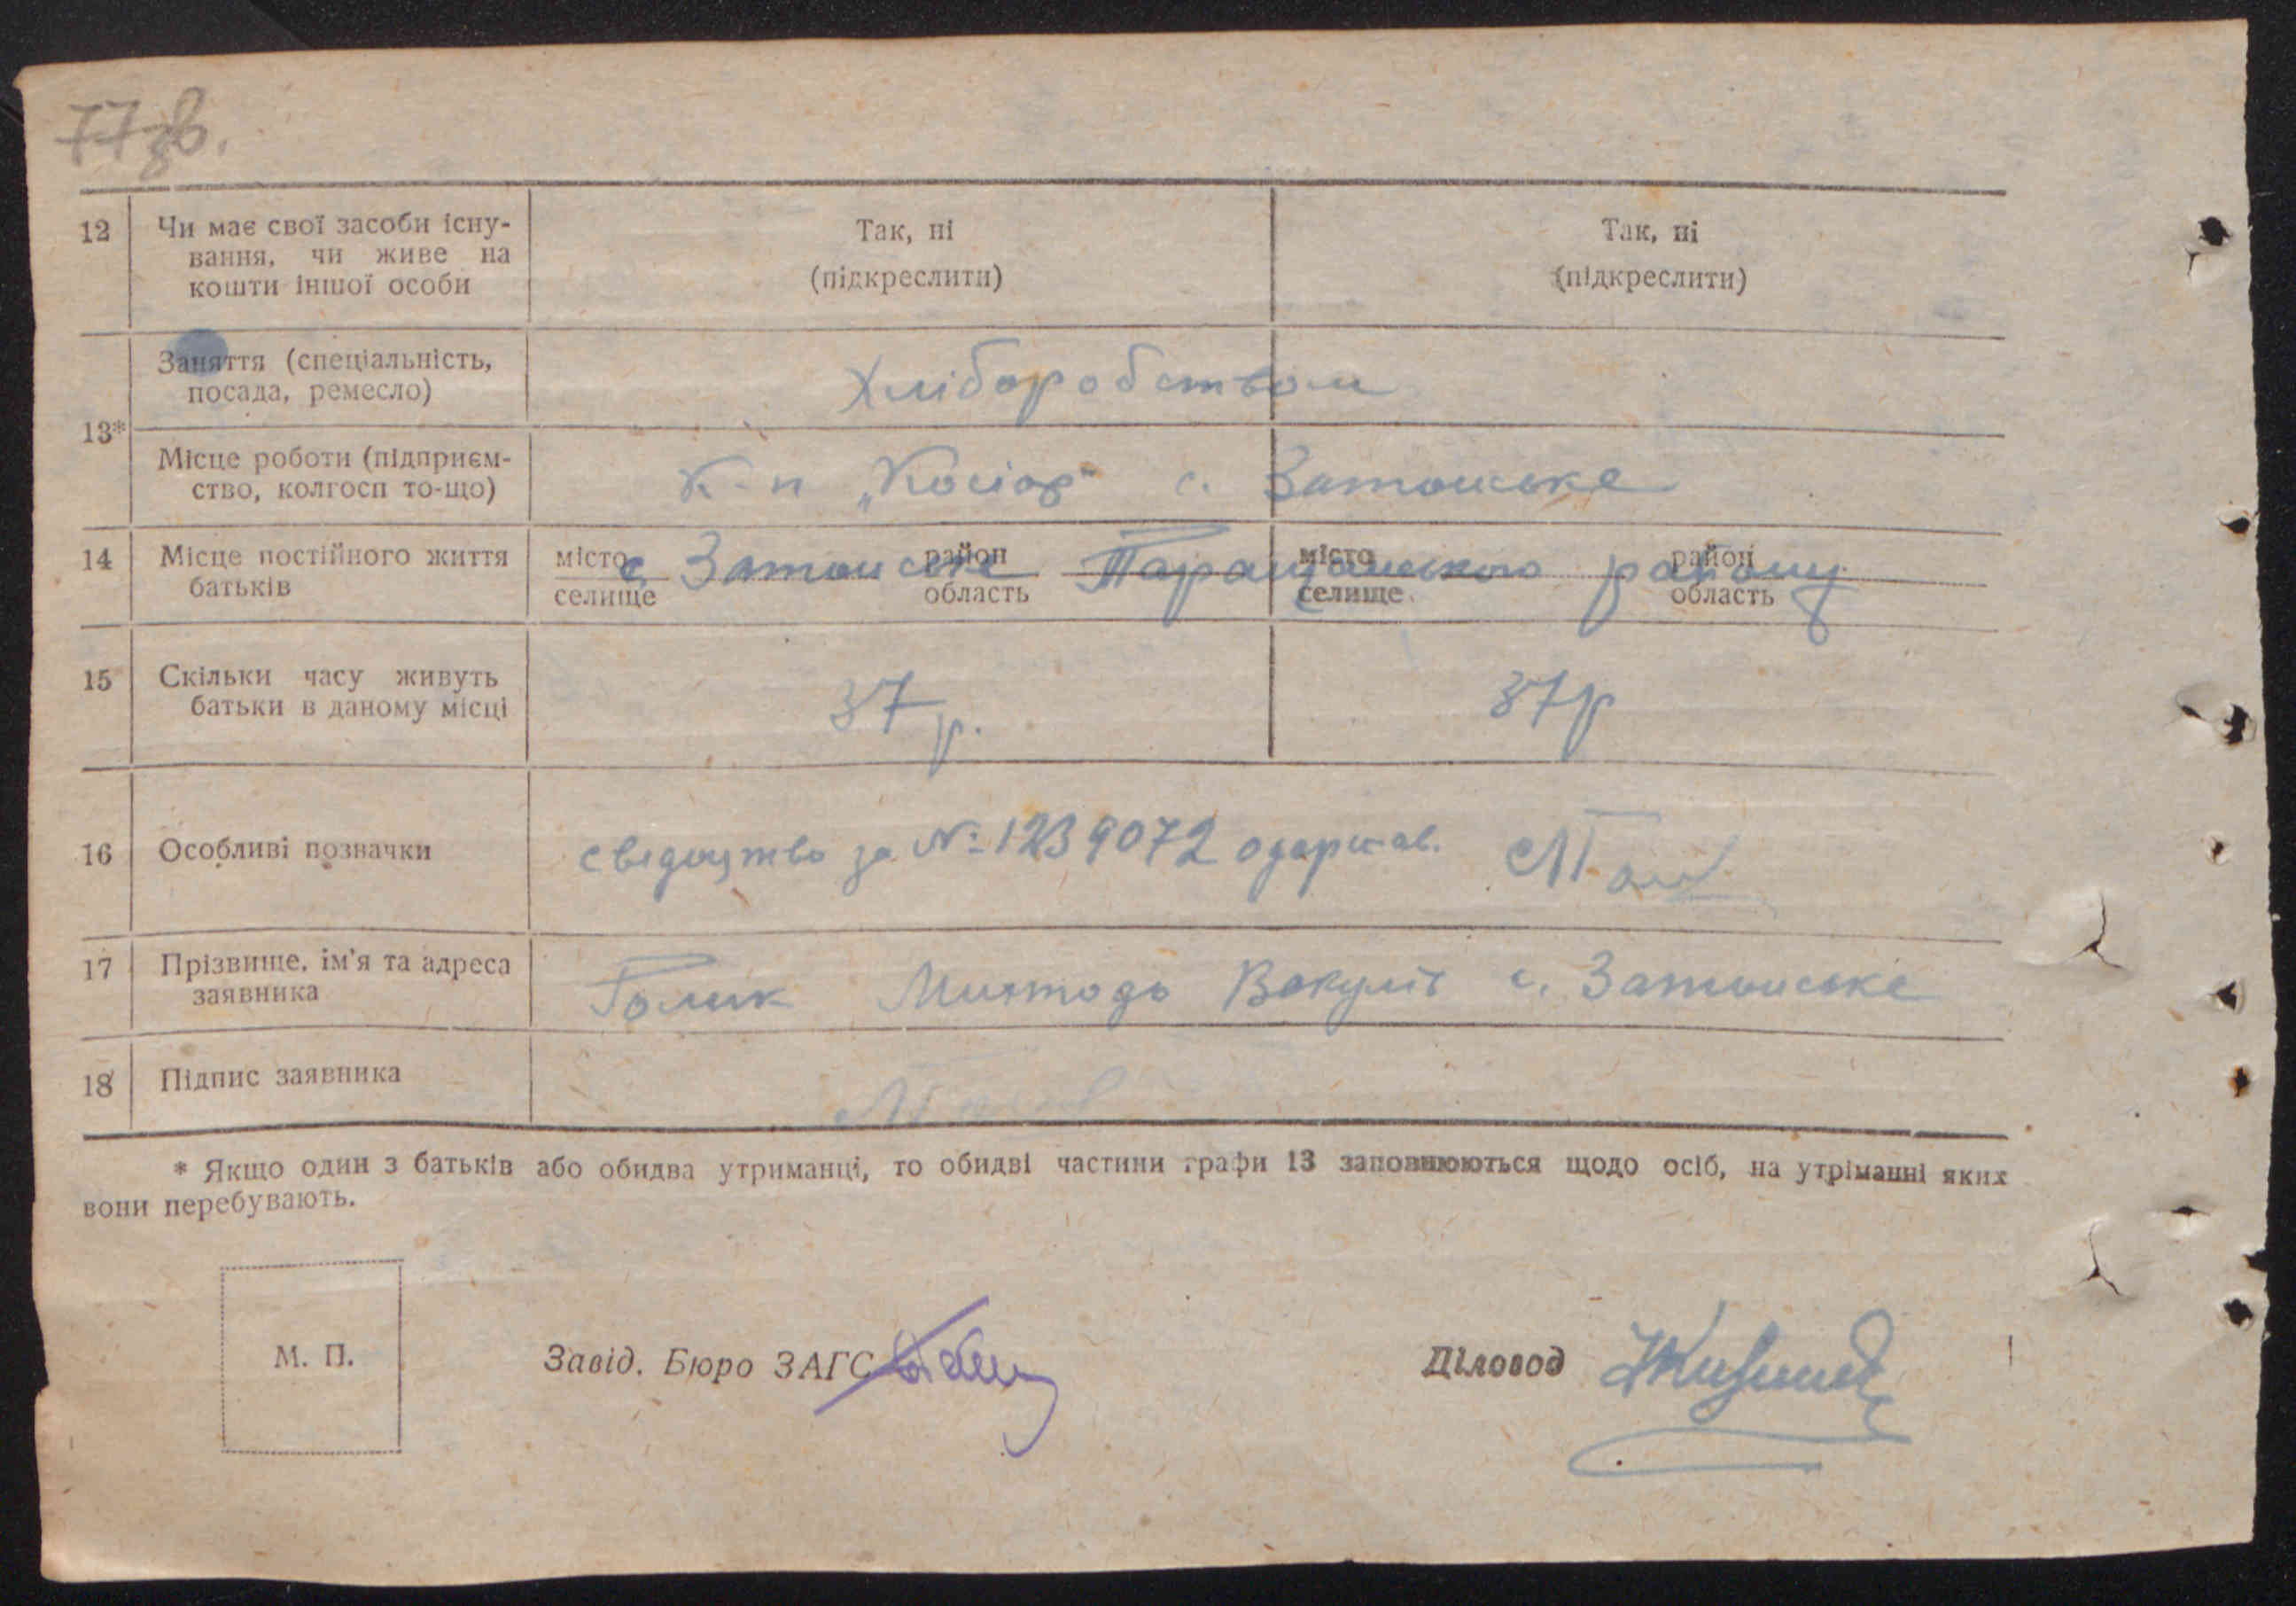 77 зв.
12 Чи має свої засоби існу-
вання, чи живе на
кошти іншої особи
Так, ні
(підкреслити)
Так, ні
(підкреслити)
13*
Заняття (спеціальність,
посада, ремесло)
Хліборобством
Місце роботи (підприєм-
ство, колгосп то-що)
К-п „Косіор" с.
14 Місце постійного життя
батьків
місто район місто район
с Таращанського району
селище область селище область
15 Скільки часу живуть
батьки в даному місці
37 р.
37 р
16 Особливі позначки
свідоцтво за №: 1239072 одержав.
17 Прізвище, ім'я та адреса
заявника
Голик с.
18 Підпис заявника
* Якщо один з батьків або обидва утриманці, то обидві частини графи 13 заповнюються щодо осіб, на утріманні яких
вони перебувають.
М. П.
Завід. Бюро ЗАГС
Діловод